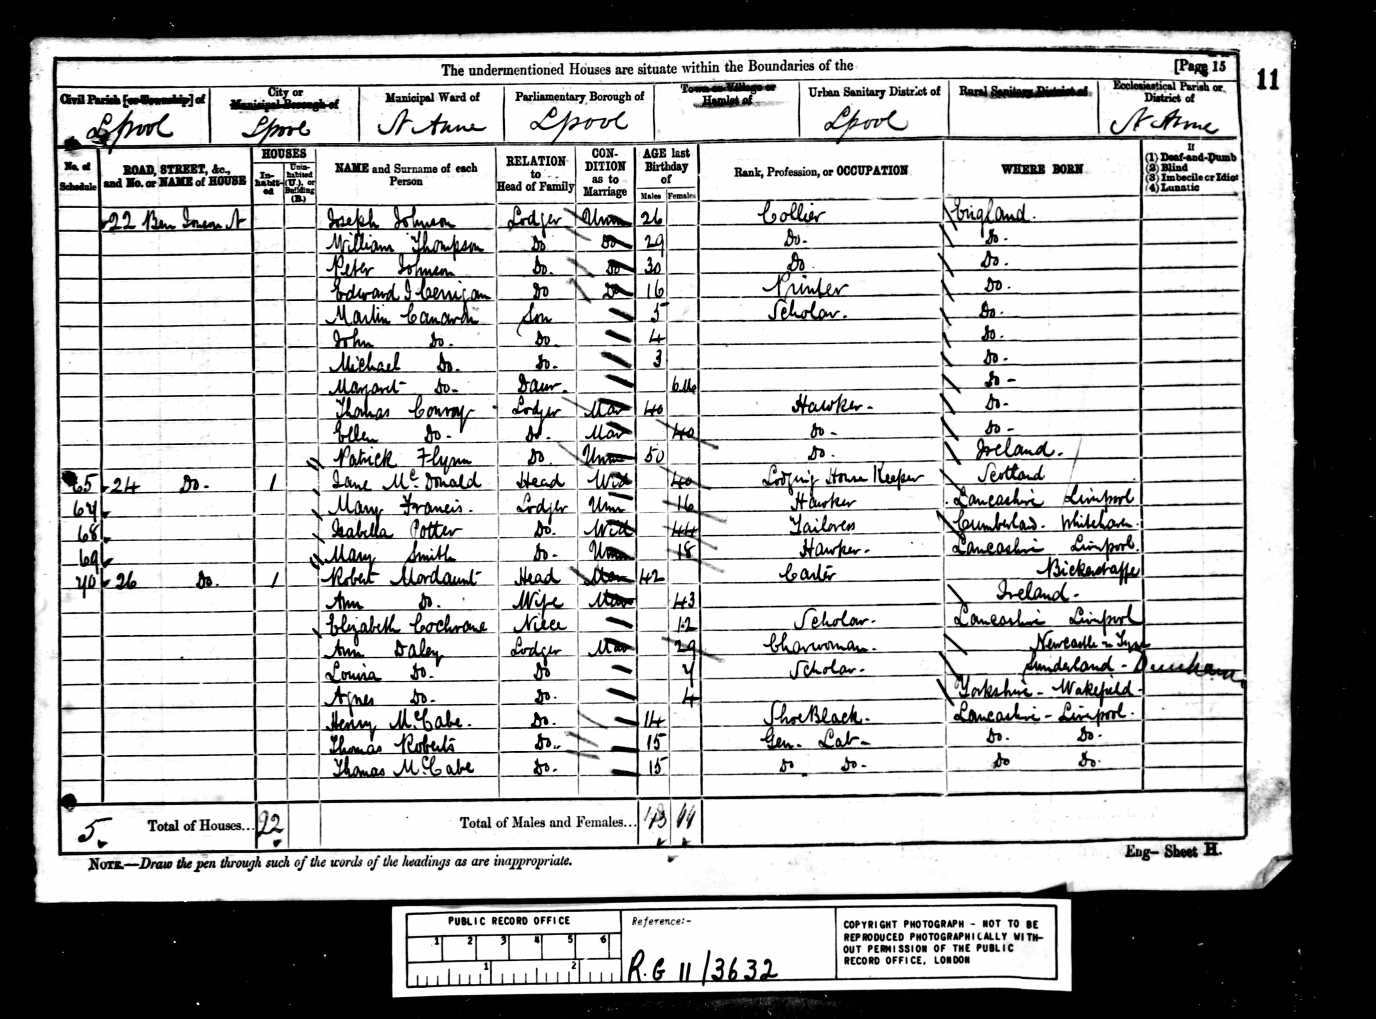 The undermentioned Houses are situate within the Boundaries of the [Page 15
11
Civil Parish [or Township] of City or Municipal Borough of Municipal Ward of Parliamentary Borough of Town or Village or Hamlet of Urban Sanitary District of Rural Sanitary District of Ecclesiastical Parish or District of
Lpool Lpool St Anne Lpool Lpool St Anne
No. of Schedule ROAD, STREET, &c., and No. or NAME of HOUSE HOUSES Inhabited Uninhabited (U.), or Building (B.) NAME and Surname of each Person RELATION to Head of Family CONDITION as to Marriage AGE last Birthday of Males Females Rank, Profession, or OCCUPATION WHERE BORN If (1) Deaf-and-Dumb (2) Blind (3) Imbecile or Idiot (4) Lunatic
22 Ben Jonson St Joseph Johnson Lodger Unm 26 Collier England.
William Thompson Do Do 29 Do. Do.
Peter Johnson Do. Do 30 Do Do.
Edward J Do Do 16 Printer Do.
Martin Son 5 Scholar. Do.
John Do. Do 4 Do.
Michael Do. Do. 3 Do.
Margaret Do. Daur. Do -
Thomas Conroy Lodger Mar 40 Hawker - Do.
Ellen Do - Do. Mar 40 Do - Do -
Patrick Flynn Do Unm 50 Do. Ireland.
65 24 Do. 1 Jane Mc Donald Head Wid 40 Lodging House Keeper Scotland
67 Mary Francis. Lodger Unm 16 Hawker Lancashire Liverpool
68 Isabella Potter Do. Wid 44 Tailoress Cumberland. Whitehaven.
69 Mary Smith Do. Unm 18 Hawker - Lancashire Liverpool.
70 26 Do. 1 Robert Mordaunt Head Mar 42 Carter Bickerstaffe
Ann Do. Wife Mar 43 Ireland -
Elizabeth Cochrane Niece 12 Scholar. Lancashire Liverpool
Ann Daley Lodger Mar 29 Charwoman. Newcastle - Tyne
Louisa Do. Do 7 Scholar. Sunderland - Durham
Agnes Do. Do. 4 Yorkshire - Wakefield -
Henry McCabe. Do. 14 Shoe Black. Lancashire - Liverpool.
Thomas Roberts Do. 15 Gen. Lab - Do. Do.
Thomas McCabe Do. 15 Do Do. Do Do.
5. Total of Houses... Total of Males and Females...
NOTE.—Draw the pen through such of the words of the headings as are inappropriate.
Eng— Sheet H.
PUBLIC RECORD OFFICE
1 2 3 4 5 6
1 2
Reference:-
R.G 11/3632
COPYRIGHT PHOTOGRAPH - NOT TO BE
REPRODUCED PHOTOGRAPHICALLY WITH-
OUT PERMISSION OF THE PUBLIC
RECORD OFFICE, LONDON